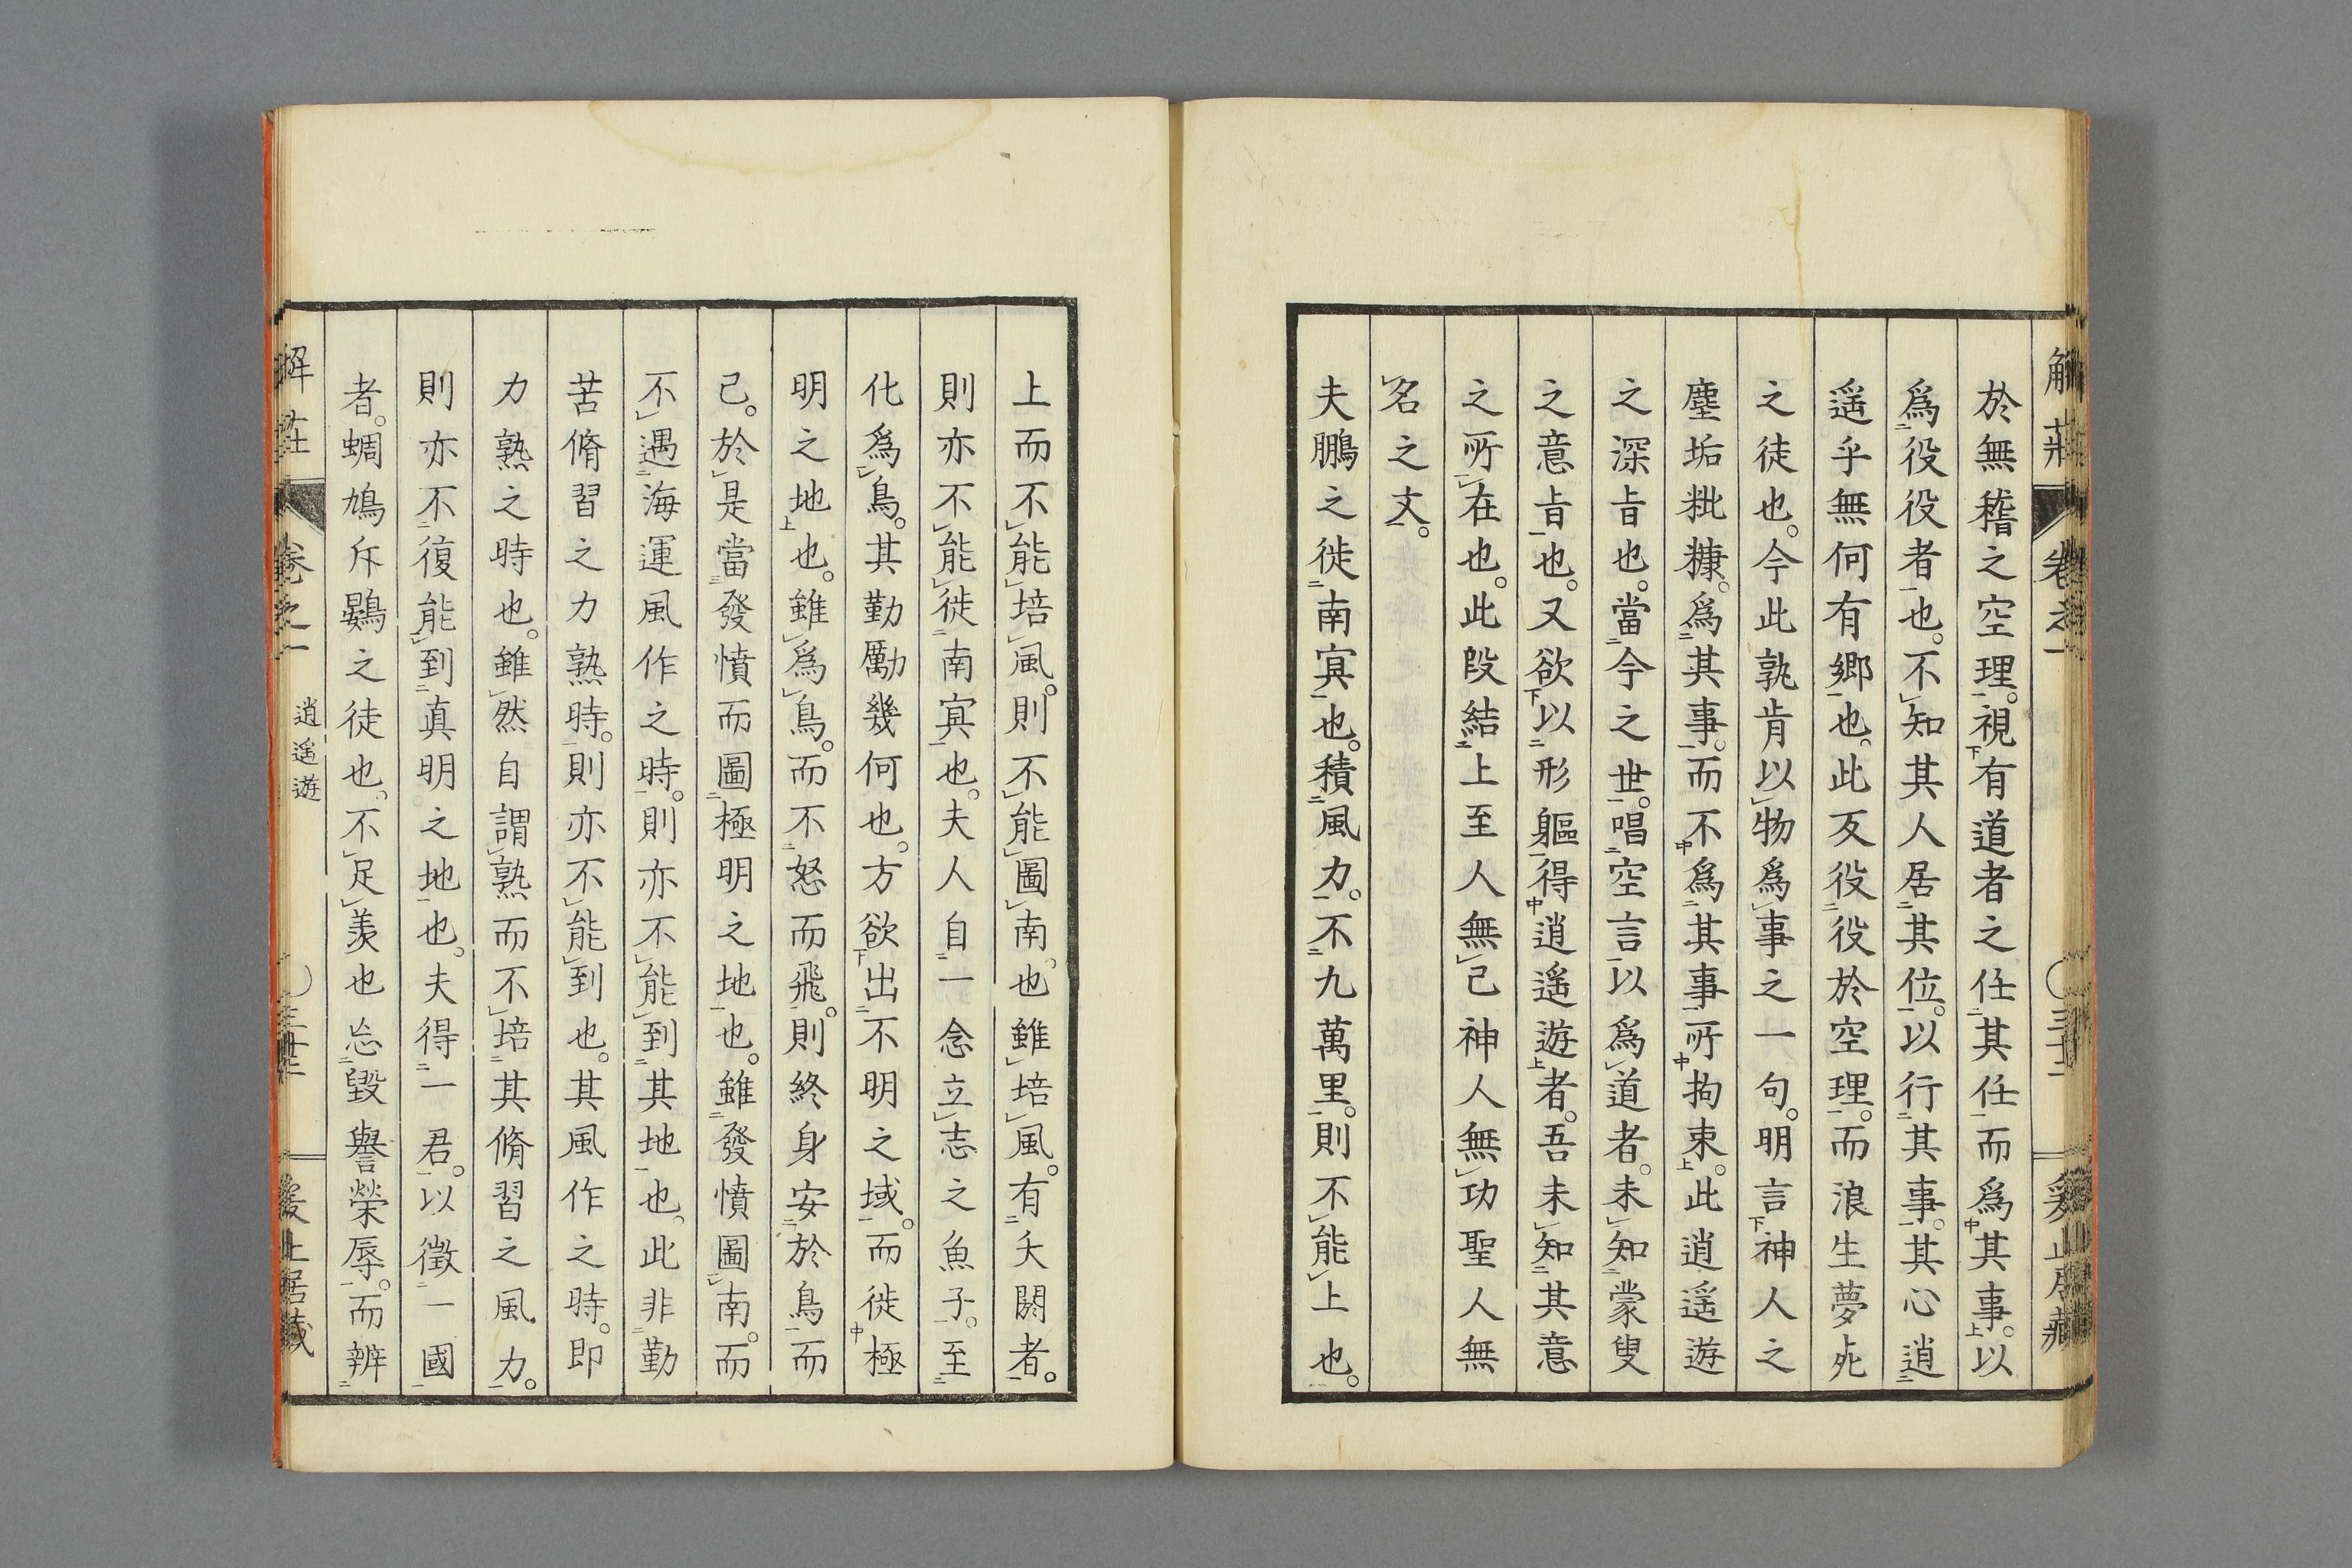 解莊 卷之一 三十二
於無稽之空理。視有道者之任其任而爲其事。以
爲役役者也。不知其人居其位。以行其事。其心逍
遥乎無何有鄉也。此反役役於空理。而浪生夢死
之徒也。今此孰肯以物爲事之一句。明言神人之
塵垢粃糠。爲其事。而不爲其事所拘束。此逍遥遊
之深旨也。當今之世。唱空言以爲道者。未知蒙叟
之意旨也。又欲以形軀得逍遥遊者。吾未知其意
之所在也。此段結上至人無己神人無功聖人無
名之文。
夫鵬之徙南冥也。積風力。不九萬里。則不能上也。
上而不能培風。則不能圖南也。雖培風。有夭閼者。
則亦不能徙南冥也。夫人自一念立志之魚子。至
化爲鳥。其勤勵幾何也。方欲出不明之域。而徙極
明之地也。雖爲鳥。而不怒而飛。則終身安於鳥而
已。於是當發憤而圖極明之地也。雖發憤圖南。而
不遇海運風作之時。則亦不能到其地也。此非勤
苦脩習之力熟時。則亦不能到也。其風作之時。即
力熟之時也。雖然自謂熟而不培其脩習之風力。
則亦不復能到真明之地也。夫得一君。以徵一國
者。蜩鳩斥鷃之徒也。不足羨也忘毀譽榮辱。而辨
解莊 卷之一 逍遥遊